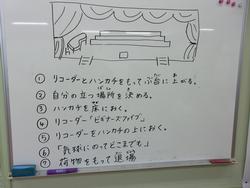 ① リコーダーとハンカチをもってぶ台に上がる。
② 自分の立つ場所を決める。
③ ハンカチを床におく。
④ リコーダー「ビギナーズファイブ」
⑤ リコーダーをハンカチの上におく。
⑥ 「気球にのってどこまでも」
⑦ 荷物をもって退場